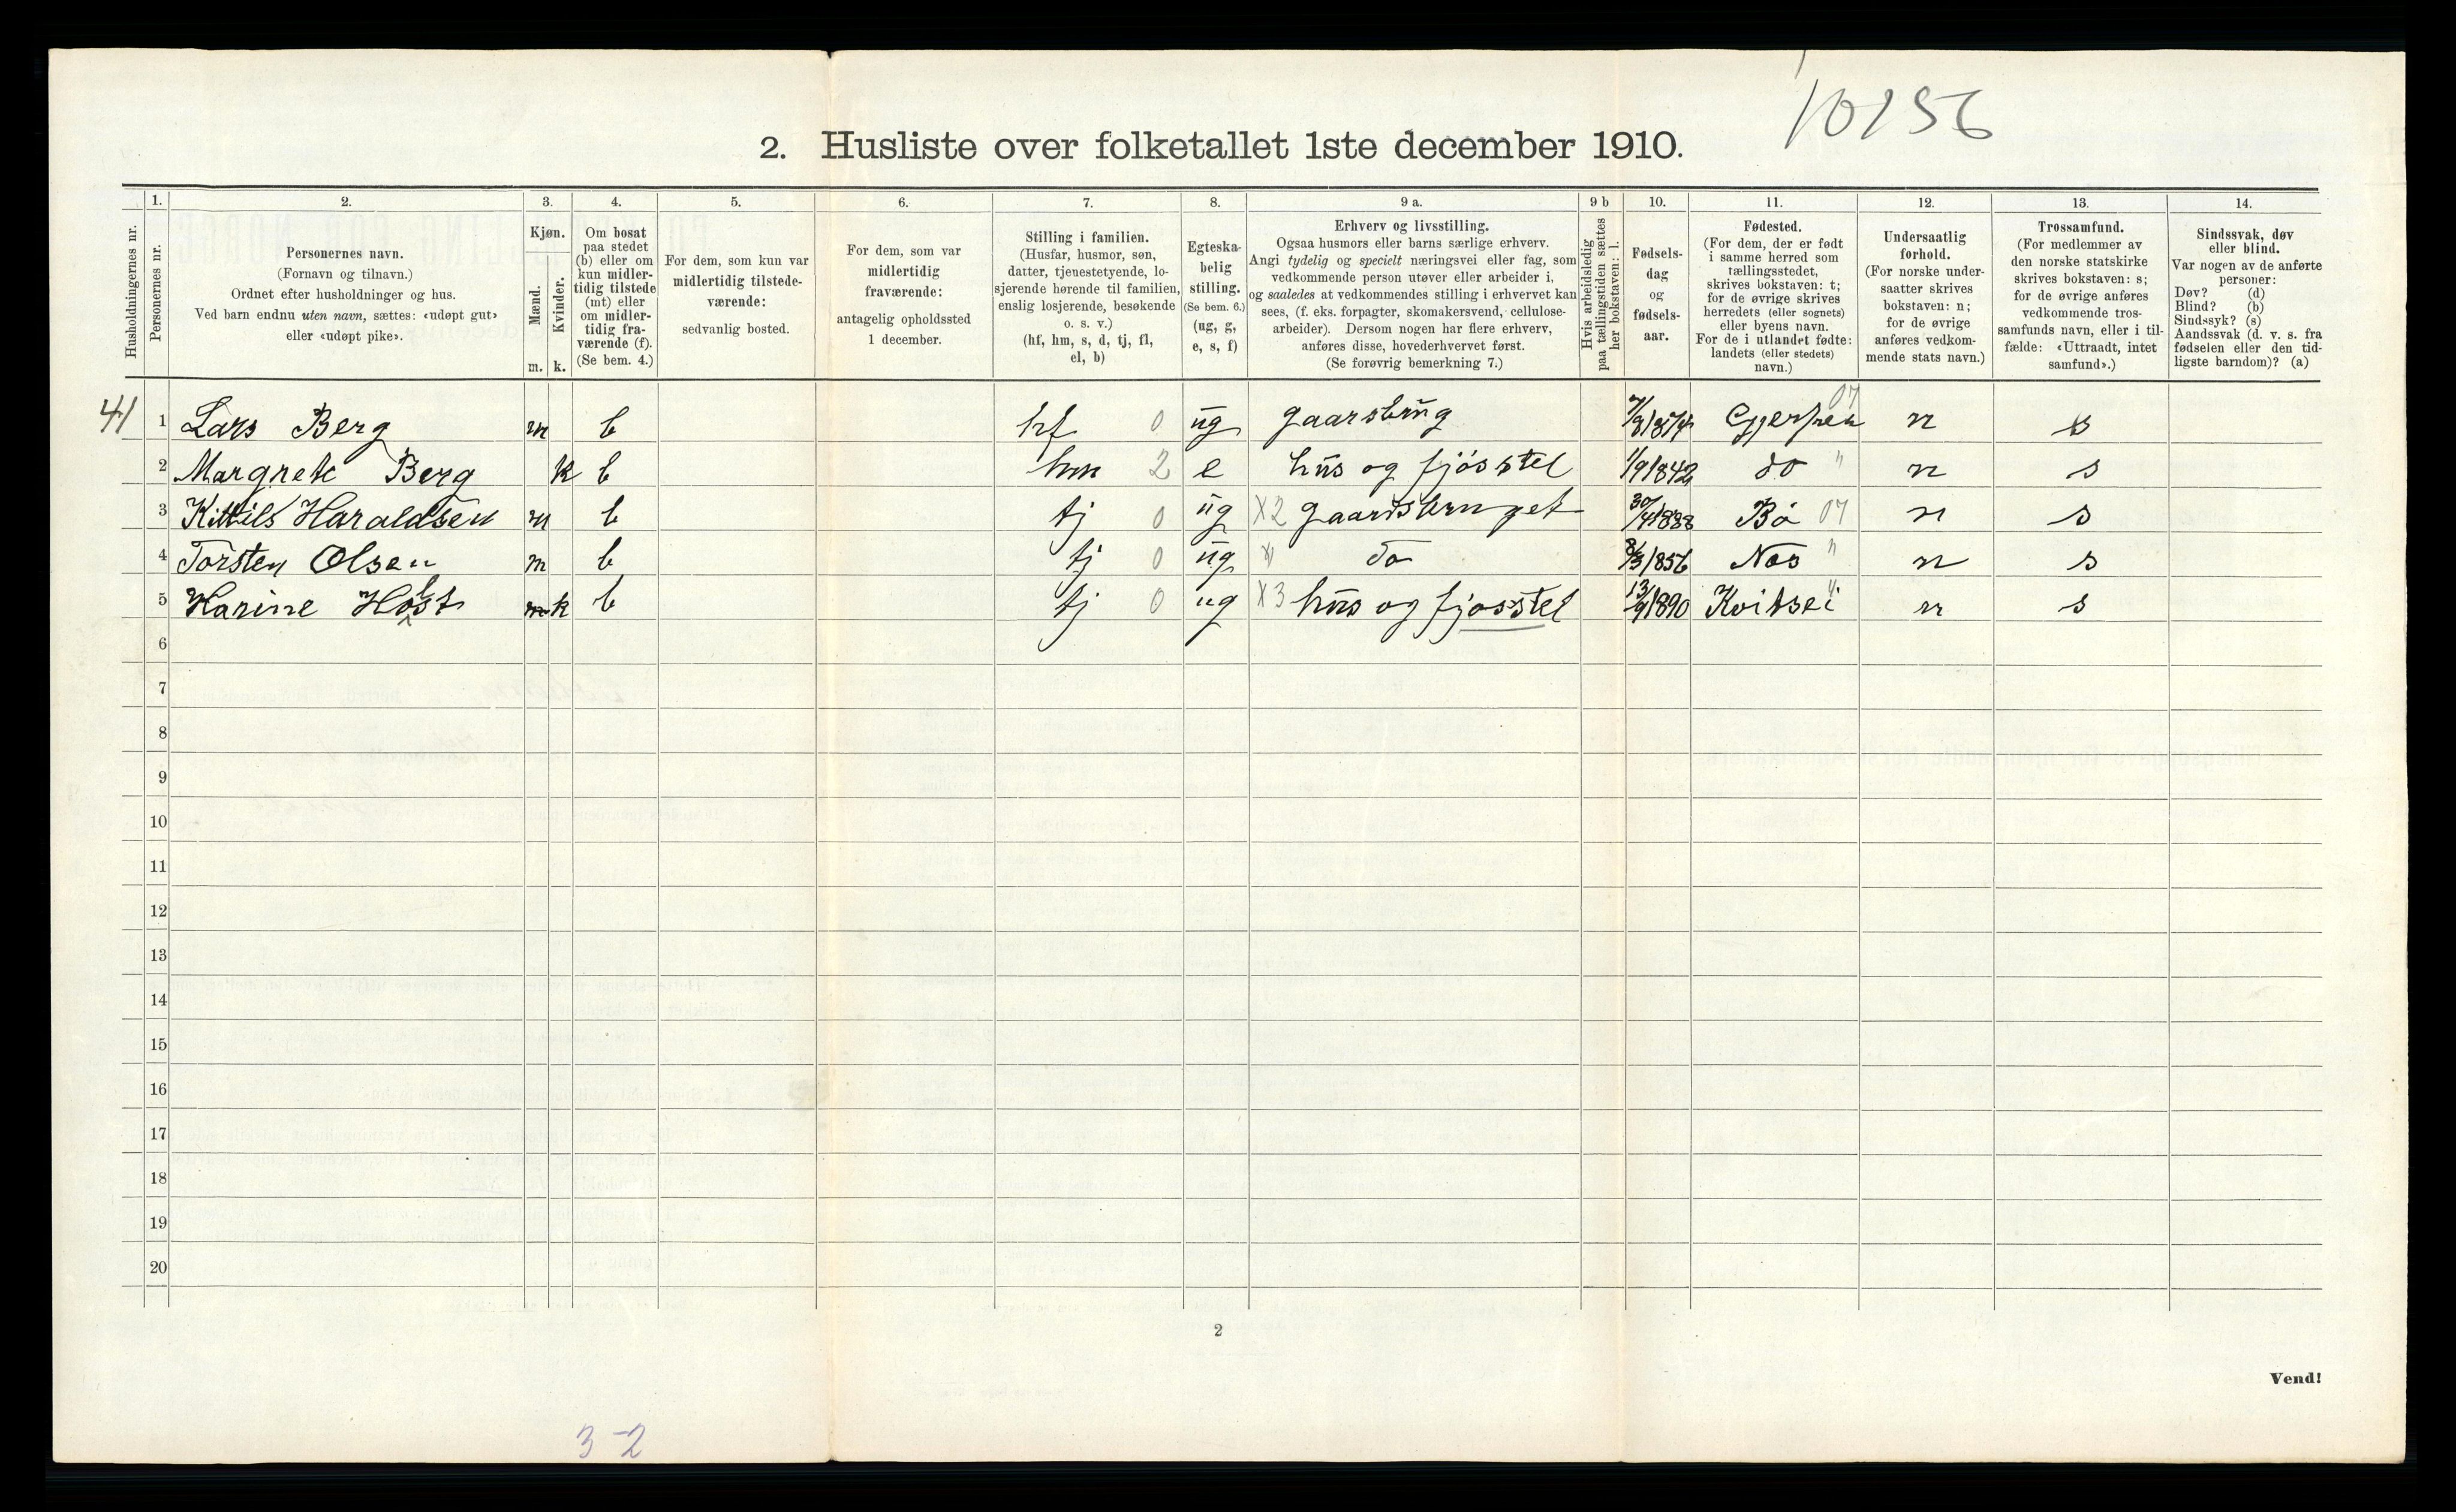 10156
2. Husliste over folketallet 1ste december 1910.
Husholdningernes nr.
1.
Personernes nr.
2.
Personernes navn.
(Fornavn og tilnavn.)
Ordnet efter husholdninger og hus.
Ved barn endnu uten navn, sættes: «udøpt gut»
eller «udøpt pike».
3.
Kjøn.
Mænd.
Kvinder.
m. k.
4.
Om bosat
paa stedet
(b) eller om
kun midler-
tidig tilstede
(mt) eller
om midler-
tidig fra-
værende (f).
(Se bem. 4.)
5.
For dem, som kun var
midlertidig tilstede-
værende:
sedvanlig bosted.
6.
For dem, som var
midlertidig
fraværende:
antagelig opholdssted
1 december.
7.
Stilling i familien.
(Husfar, husmor, søn,
datter, tjenestetyende, lo-
sjerende hørende til familien,
enslig losjerende, besøkende
o. s. v.)
(hf, hm, s, d, tj, fl,
el, b)
8.
Egteska-
belig
stilling.
(Se bem. 6.)
(ug, g,
e, s, f)
9 a.
Erhverv og livsstilling.
Ogsaa husmors eller barns særlige erhverv.
Angi tydelig og specielt næringsvei eller fag, som
vedkommende person utøver eller arbeider i,
og saaledes at vedkommendes stilling i erhvervet kan
sees, (f. eks. forpagter, skomakersvend, cellulose-
arbeider). Dersom nogen har flere erhverv,
anføres disse, hovederhvervet først.
(Se forøvrig bemerkning 7.)
9 b
Hvis arbeidsledig
paa tællingstiden sættes
her bokstaven: l.
10.
Fødsels-
dag
og
fødsels-
aar.
11.
Fødested.
(For dem, der er født
i samme herred som
tællingsstedet,
skrives bokstaven: t;
for de øvrige skrives
herredets (eller sognets)
eller byens navn.
For de i utlandet fødte:
landets (eller stedets)
navn.)
12.
Undersaatlig
forhold.
(For norske under-
saatter skrives
bokstaven: n;
for de øvrige
anføres vedkom-
mende stats navn.)
13.
Trossamfund.
(For medlemmer av
den norske statskirke
skrives bokstaven: s;
for de øvrige anføres
vedkommende tros-
samfunds navn, eller i til-
fælde: «Uttraadt, intet
samfund».)
14.
Sindssvak, døv
eller blind.
Var nogen av de anførte
personer:
Døv? (d)
Blind? (b)
Sindssyk? (s)
Aandssvak (d. v. s. fra
fødselen eller den tid-
ligste barndom)? (a)
41 1 Lars Berg m b hf 0 ug gaarsbrug 7/8 1874 Gjerpen 07 n s
2 Margrete Berg k b hm 2 e hus og fjösstel 1/9 1842 do " n s
3 Kittils Haraldsen m b tj 0 ug X2 gaardsbruget 30/4 1888 Bö 07 n s
4 Torsten Olsen m b tj 0 ug do 1856 Nes " n s
5 Karine b tj 0 ug X3 hus og fjosstel 13/9 1890 Kvitsei " n s
6
7
8
9
10
11
12
13
14
15
16
17
18
19
20
2
Vend!
3-2